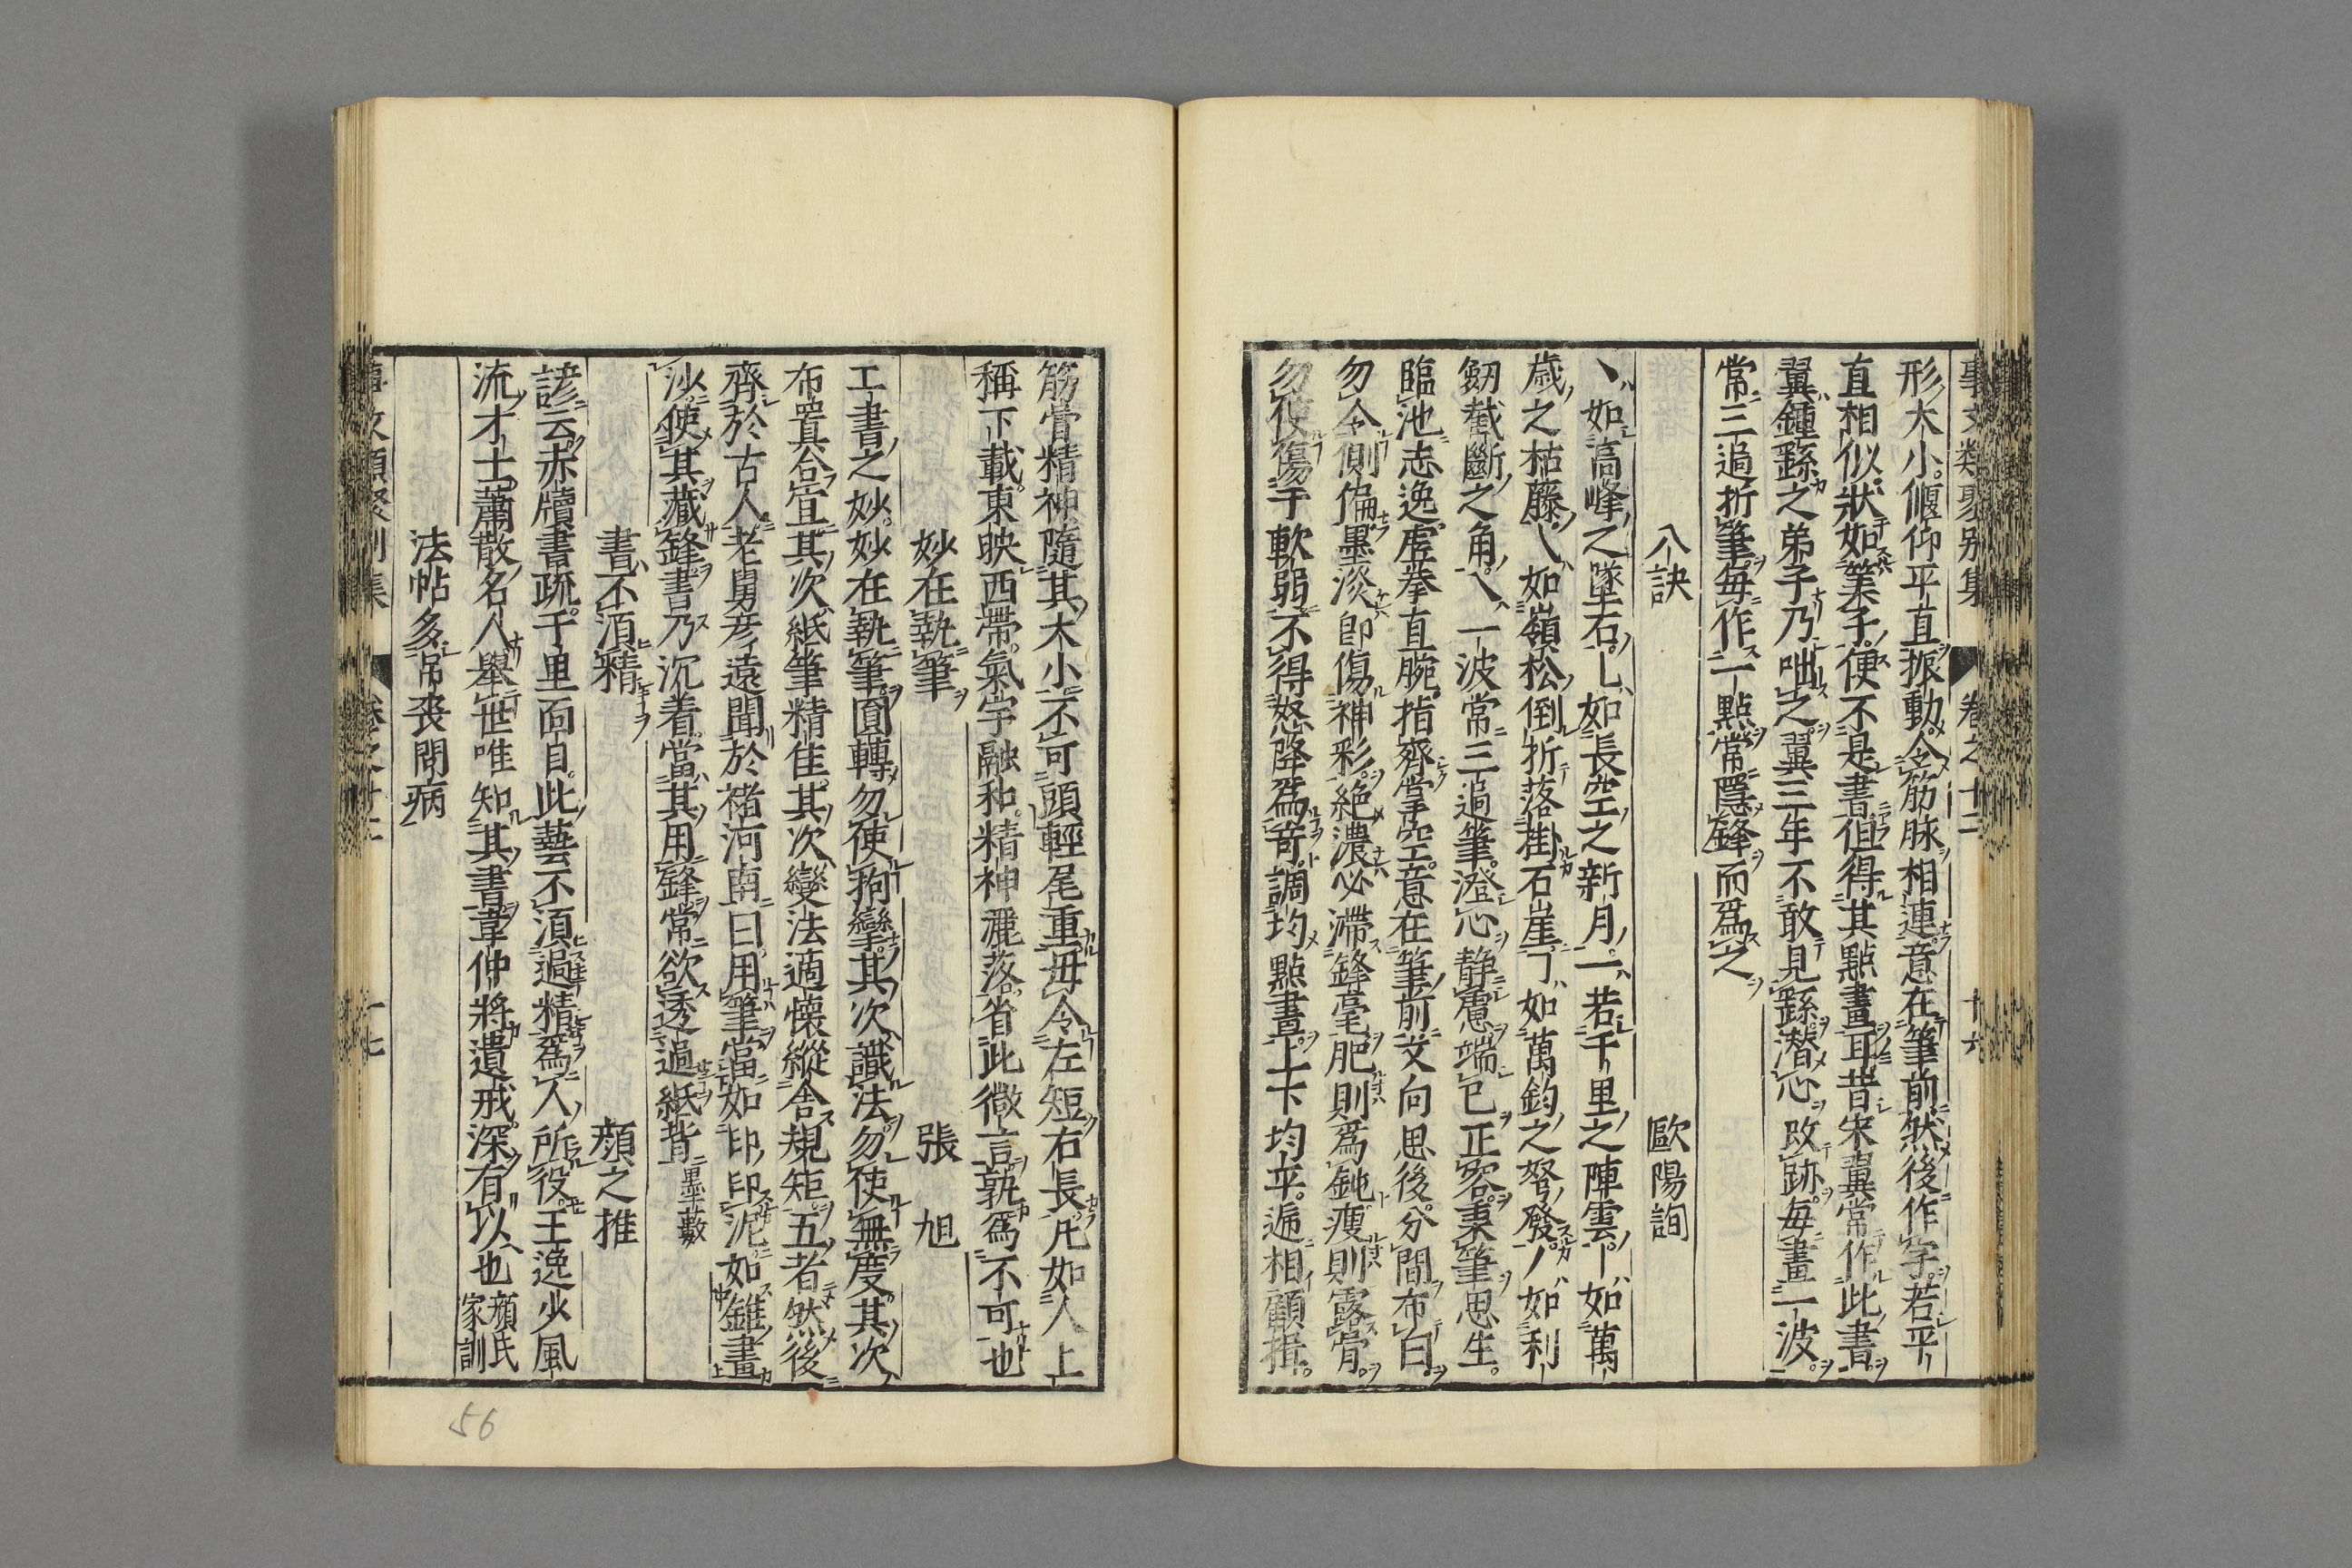 事文類聚別集 卷之十二 十六
形大小偃仰平直振動令筋脉相連意在筆前然後作字若平
直相似狀如筭子便不是書但得其點畫耳昔宋翼常作此書
翼鍾繇之弟子乃咄之翼三年不敢見繇潜心改跡每畫一波
常三過折筆每作一點常隱鋒而爲之
八訣 歐陽詢
丶如高峰之墜石乚如長空之新月一若千里之陣雲丨如萬
歳之枯藤乀如嶺松倒折落掛石崖㇆如萬鈞之弩發丿如利
劒截斷之角乀一波常三過筆澄心静慮端已正容秉筆思生
臨池志逸虚拳直腕指齊掌空意在筆前文向思後分間布白
勿令側偏墨淡即傷神彩絶濃必滯鋒毫肥則爲鈍瘦則露骨
勿使傷于軟弱不得怒降爲竒調均點畫上下均平遞相顧揖
筋骨精神隨其大小不可頭輕尾重毋令左短右長凡如人上
稱下載東映西帶氣宇融和精神灑落省此微言孰爲不可也
妙在執筆 張旭
工書之妙妙在執筆圎轉勿使拘攣其次識法勿使無度其次
布置合宜其次紙筆精佳其次變法適懷縱舎規矩五者然後
齊於古人老舅彦遠聞於褚河南曰用筆當如印印泥如錐畫
沙使其藏鋒書乃沉着當其用鋒常欲透過紙背 墨藪
書不湏精 顔之推
諺云赤牘書疏千里面目此藝不湏過精爲人所役王逸少風
流才士蕭散名人舉世唯知其書韋仲將遺戒深有以也 顔氏家訓
法帖多弔喪問病
事文類聚別集 十七
56